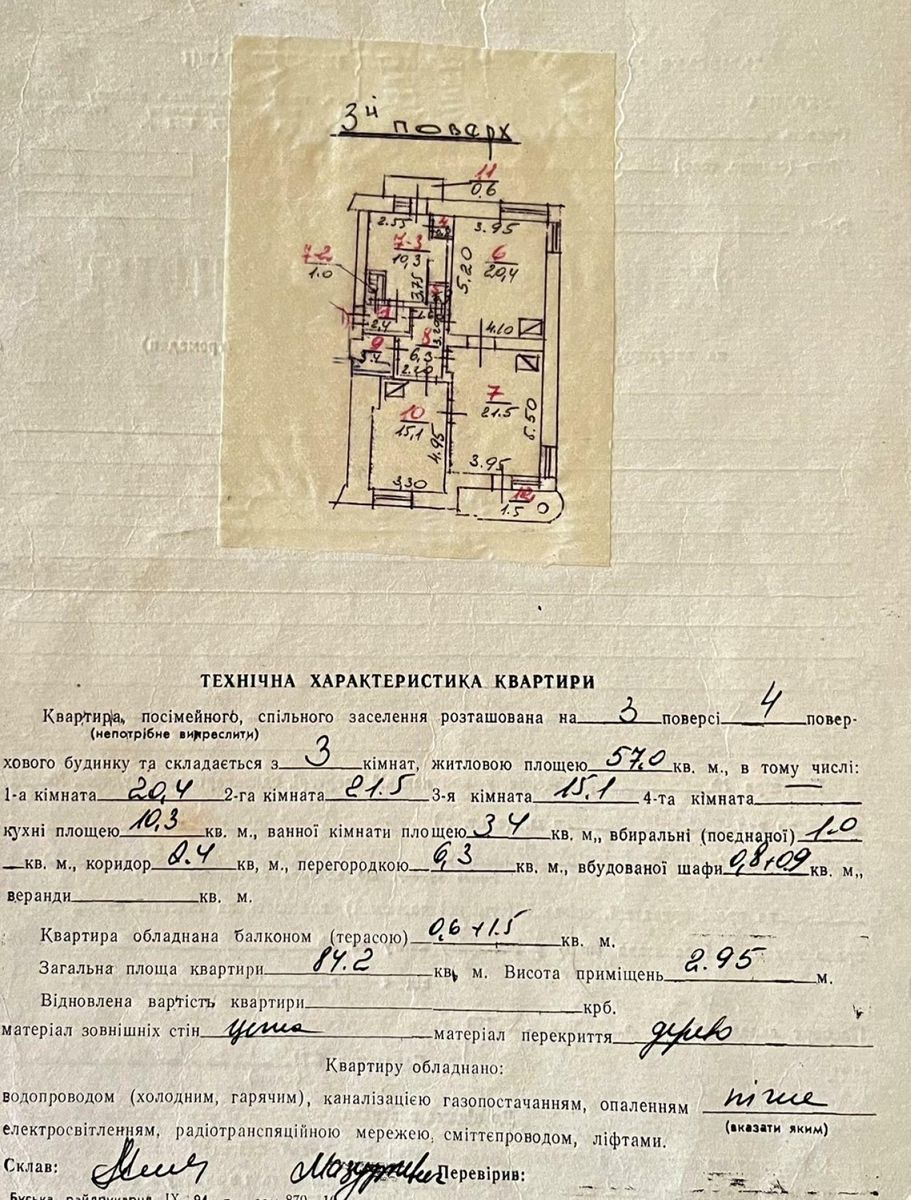 3й поверх
11
0.6
2.55
4
3.95
7-3
10,3
6
20,4
7-2
1.0
5.20
3.75
5
1
2.4
8
6.3
3.20
4.10
9
2.10
7
21.5
10
15,1
4.95
3.95
3,30
12
1.5
ТЕХНІЧНА ХАРАКТЕРИСТИКА КВАРТИРИ
Квартира, посімейного, спільного заселення розташована на 3 поверсі 4 повер-
(непотрібне викреслити)
хового будинку та складається з 3 кімнат, житловою площею 57.0 кв. м., в тому числі:
1-а кімната 20,4 2-га кімната 21.5 3-я кімната 15.1 4-та кімната
кухні площею 10,3 кв. м., ванної кімнати площею 3 4 кв. м,, вбиральні (поєднаної) 1.0
кв. м., коридор 2.4 кв, м., перегородкою 6,3 кв. м., вбудованої шафи 0,8+0.9 кв. м,,
веранди кв. м.
Квартира обладнана балконом (терасою) 0,6+1.5 кв. м.
Загальна площа квартири 84.2 кв. м. Висота приміщень 2.95 м.
Відновлена вартість квартири крб.
матеріал зовнішніх стін цегла матеріал перекриття дерево
Квартиру обладнано:
водопроводом (холодним, гарячим), каналізацією газопостачанням, опаленням пічне
(вказати яким)
електросвітленням, радіотранспяційною мережею, сміттєпроводом, ліфтами.
Склав: Перевірив: